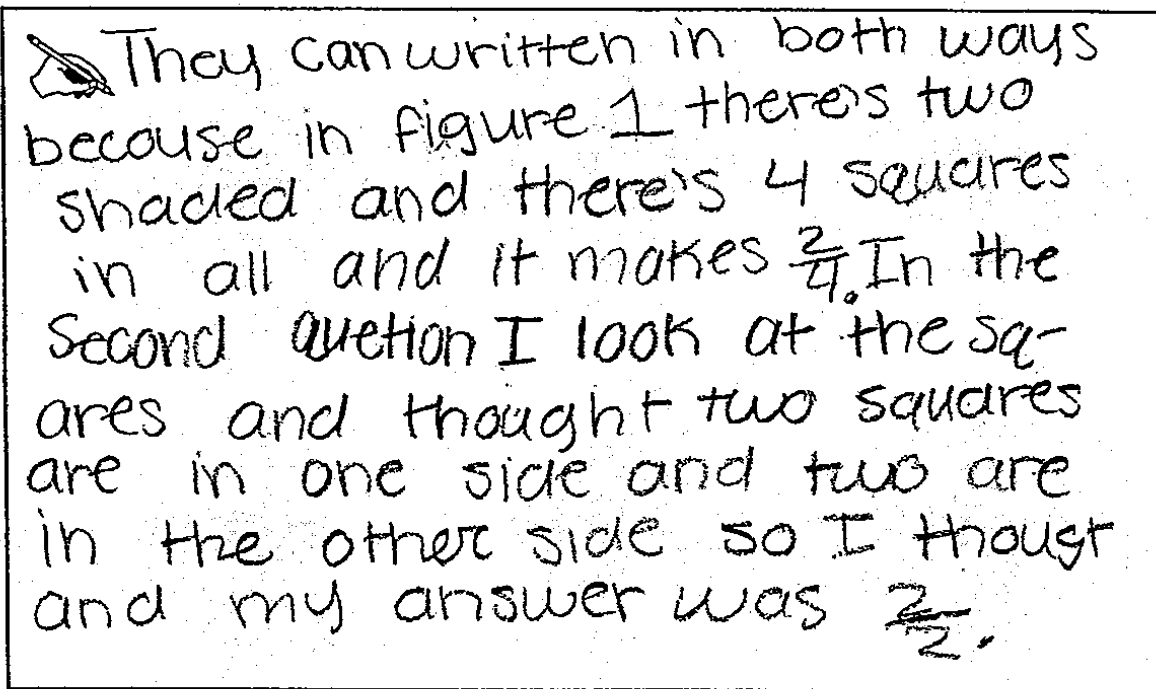 They can written in both ways
becouse in figure 1 there's two
shaded and there's 4 squares
in all and it makes 2/4. In the
Second quetion I look at the sq-
ares and thought two squares
are in one side and two are
in the other side so I thougt
and my answer was 2/2.